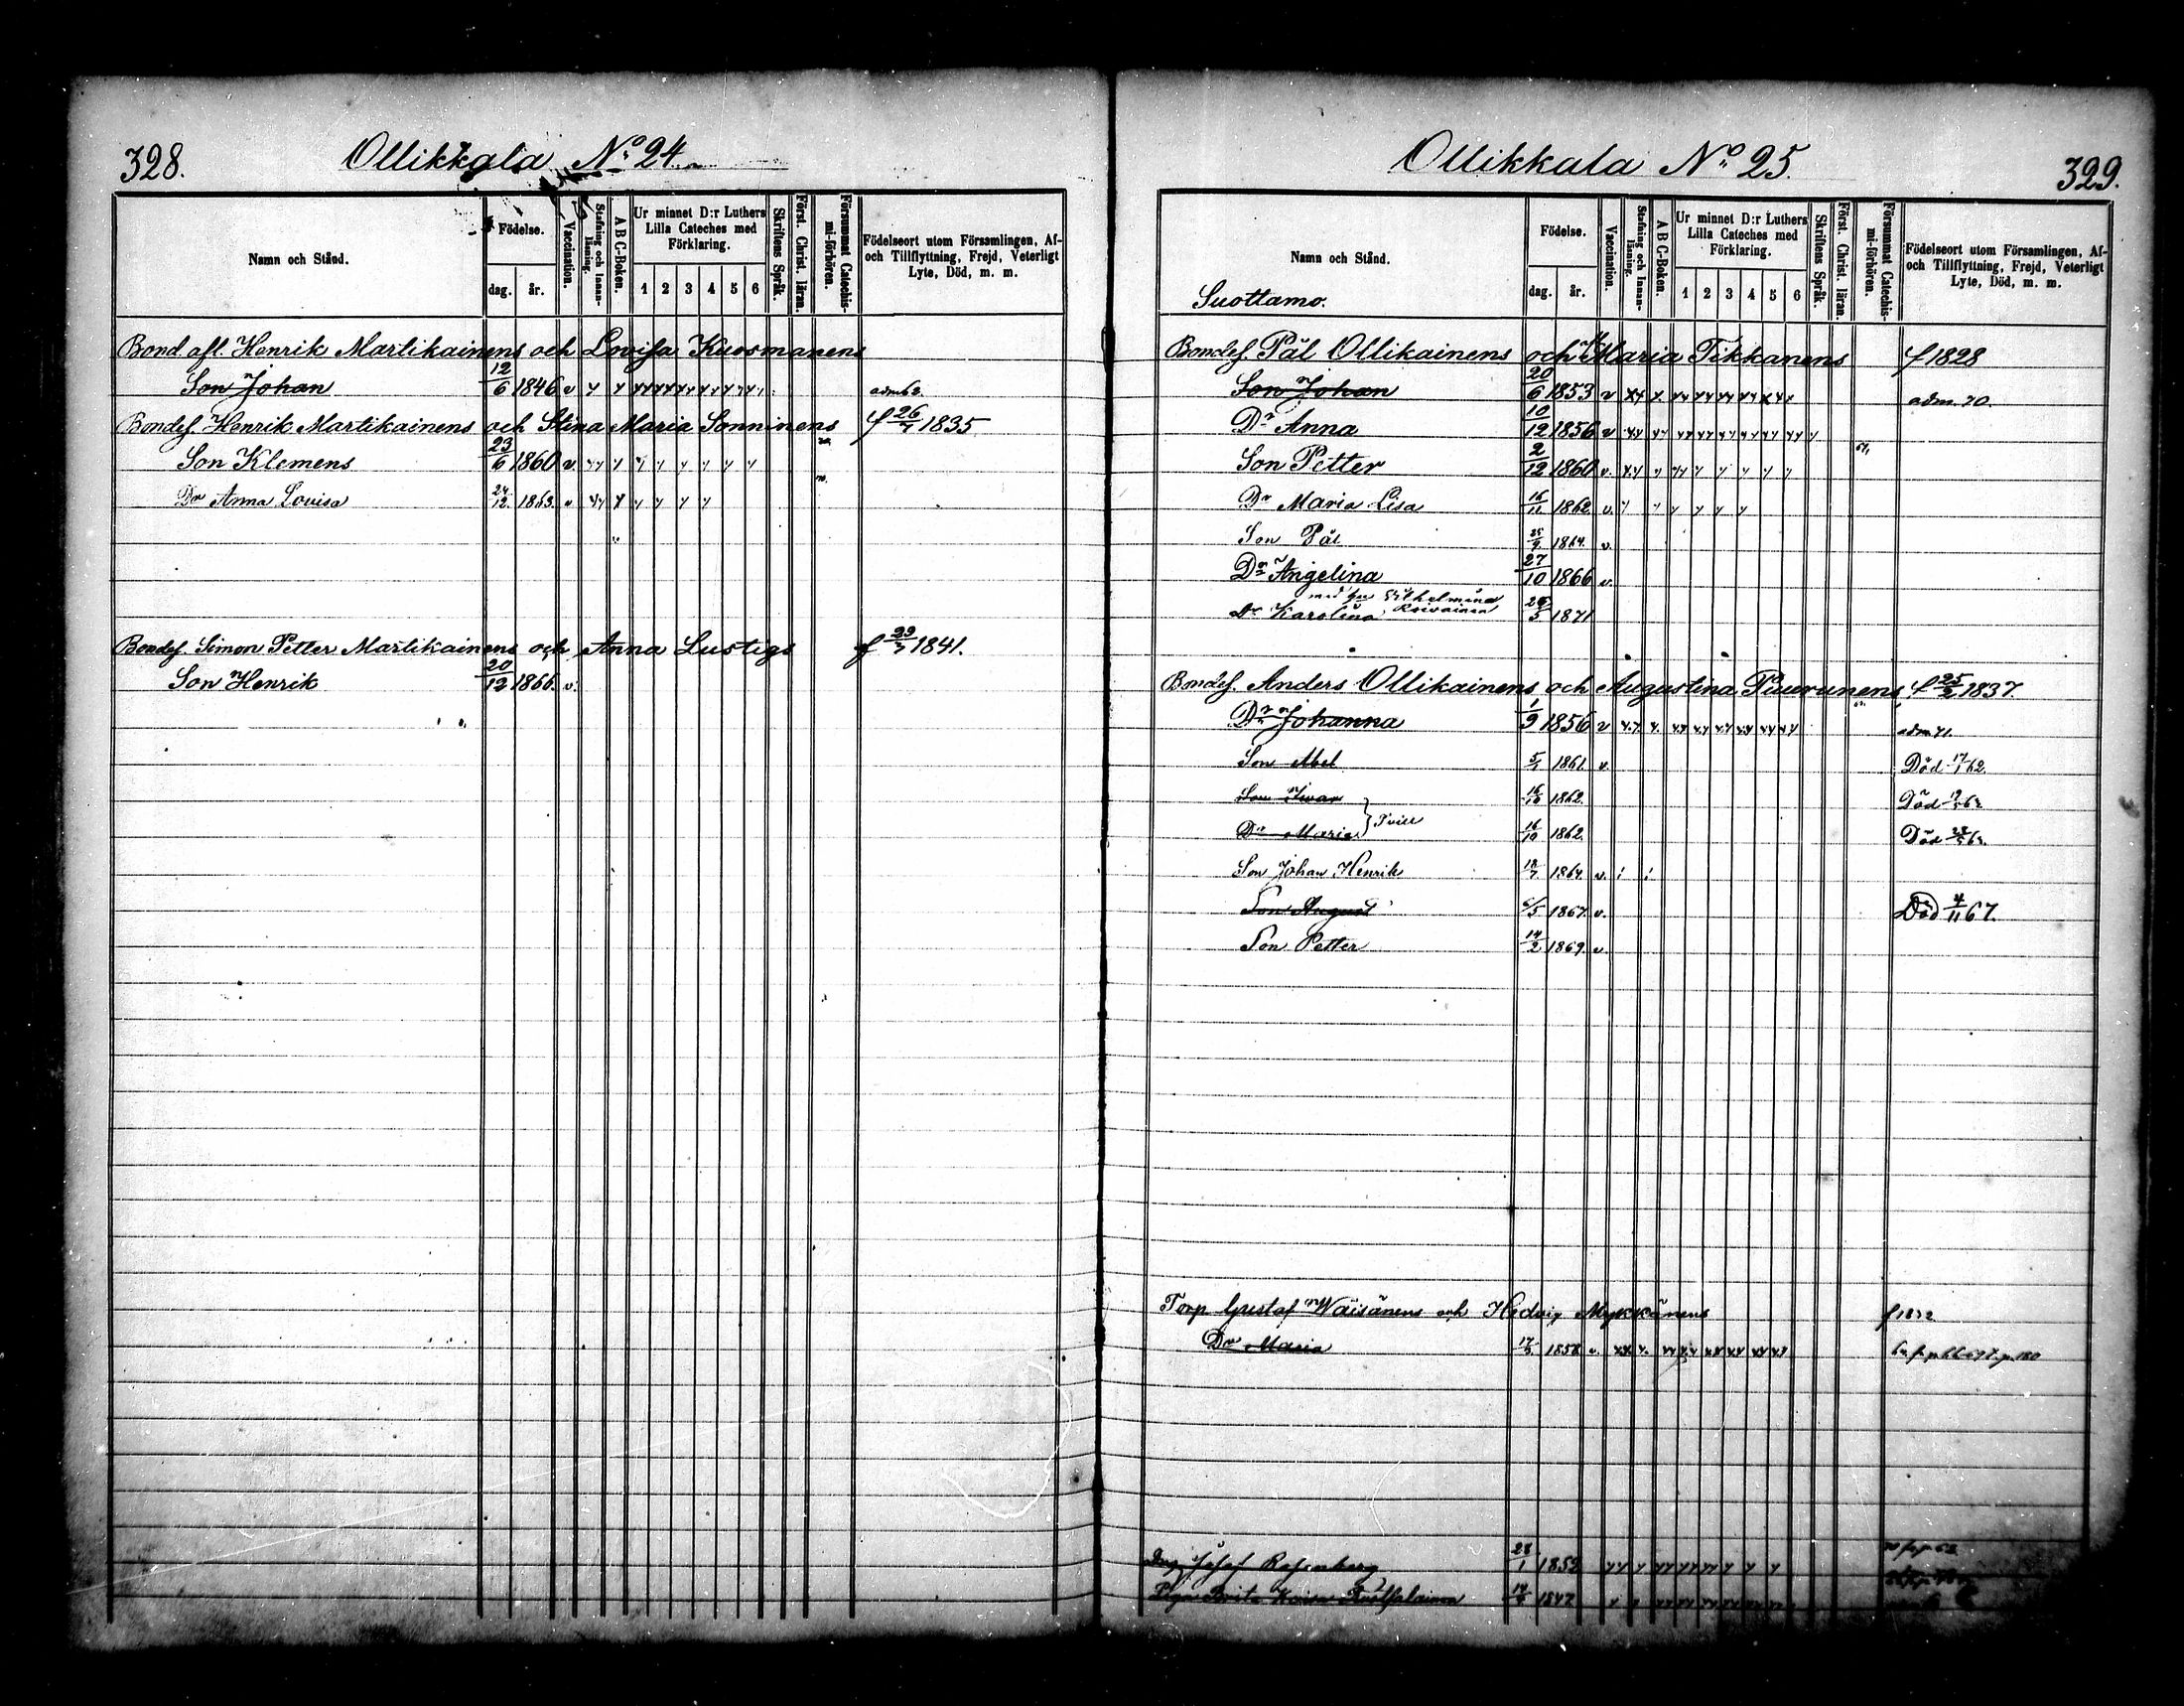 328. Ollikkala No 24
Namn och Stånd.
Födelse.
dag. år.
Vaccination.
Stafning och Innanläsning.
A B C-Boken.
Ur minnet D:r Luthers Lilla Cateches med Förklaring.
1 2 3 4 5 6
Skriftens Språk.
Först. Christ. läran.
Försummat Catechismi-förhören.
Födelseort utom Församlingen, Af- och Tillflyttning, Frejd, Veterligt Lyte, Död, m. m.
Bond. afl. Henrik Martikainens och Lovisa Kuosmanens
Son Johan 12/6 1846 v
Bondes. Henrik Martikainens och Stina Maria Sonninens f 26/7 1835
Son Klemens 23/6 1860 v
Dr Anna Lovisa 24/12 1863 v
Bondes. Simon Petter Martikainens och Anna Lustigs f 1841.
Son Henrik 20/12 1866 v.
Ollikkala No 25. 329.
Namn och Stånd.
Suottamo.
Födelse.
dag. år.
Vaccination.
Stafning och Innanläsning.
A B C-Boken.
Ur minnet D:r Luthers Lilla Cateches med Förklaring.
1 2 3 4 5 6
Skriftens Språk.
Först. Christ. läran.
Försummat Catechismi-förhören.
Födelseort utom Församlingen, Af- och Tillflyttning, Frejd, Veterligt Lyte, Död, m. m.
Bondes. Pål Ollikainens och Maria Tikkanens f 1828
Son Johan 20/6 1853 v adm. 70.
Dr Anna 10/12 1856 v
Son Petter 2/12 1860 v.
Dr Maria Lisa 16/11 1862 v.
Son Pål 25/9 1864. v.
Dr Angelina 27/10 1866 v.
Dr Karolina 1871
Bondes. Anders Ollikainens och Augustina Puurunens f 25/2 1837.
Dr Johanna 1/9 1856 v adm. 71.
Son Abel 1861 v. Död 62.
Son Ivar 16/10 1862.
Dr Maria 16/10 1862.
Son Johan Henrik 18/7 1864. v.
Son August 6/5 1867. v. Död 4/11 67.
Son Petter 14/2 1869. v
Torp. Gustaf Wäisänens och Hedvig Mykkänens
Dr Maria 1858 v.
Josef Rosenberg 28/1 1852
Piga Brita 1847